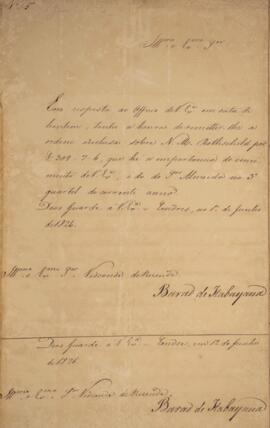 Nº 5
Illmo e Exmo Snr
Em resposta ao Officio de V. Exª em data de
hontem, tenho a honra de remetter-lhe a
ordem inclusa sobre N. M. Rothschild por
£ 309-7-6, que he a importancia do venci-
mento de V. Exª, e do Sr Almeida no 3º
quartel do corrente anno.
Deos Guarde a V. Exª - Londres, no 1º de Junho
de 1826.
Illmo e Exmo Snr Visconde de Rezende
Barão de Itabayana
Deos Guarde a V. Exª - Londres, em 1º de Junho
de 1826.
Illmo e Exmo Sr Visconde de Rezende
Barão de Itabayana